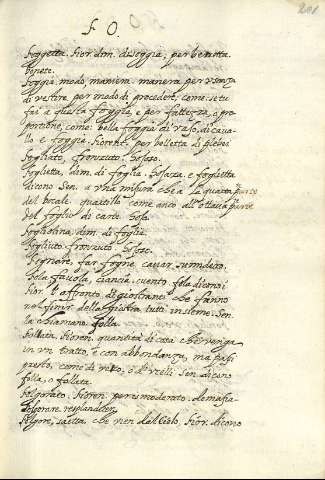 F O.
201
foggetta. Fior. dim. di foggia, per berretta.
bonete.
foggia. modo, maniera. maniera per usanza
di vestire per modo di procedere, come: se tu
fai a questa foggia, e per fattezza, e pro
portione, come: bella foggia di vaso, di caua-
llo. e foggia. Fiorent. per belletta di plebei
fogliato, fronzuto. hojoso.
foglietta, dim. di foglia. hojarza, e foglietta
dicono Sen. a una misura che è la quarta parte
del bocale. quartillo come anco all'ottava parte
del foglio di carta. hoja.
fogliolina, dim. di foglia.
fogliuto. fronzuto.
far fogne cavar sumidero.
fola favola, ciancia, cuento. fola dicono i
Fior. l'affronto di giostranti che fanno
nel fine della giostra tutti insieme. Sen.
la chiamano folla.
follata. Fioren. quantità di cosa che venga
in un tratto, e con abbondanza, ma passi
presto, come di vento, o d'uccelli. Sen. dicono
folla, o follata.
folgorato. Fioren. per ismoderato. demasia
folgorare. resplandeler.
folgore, saetta, che vien dal Cielo, Fior. dicono